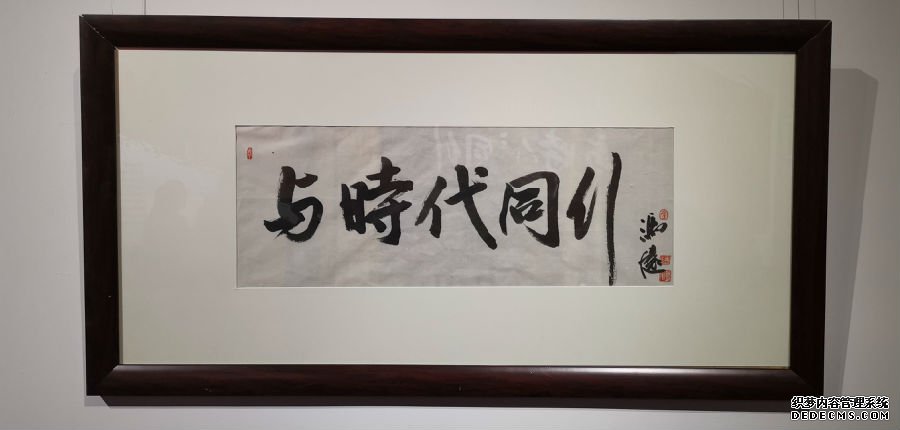 与時代同行
冯远
织梦内容管理系统
DEDECMS.COM